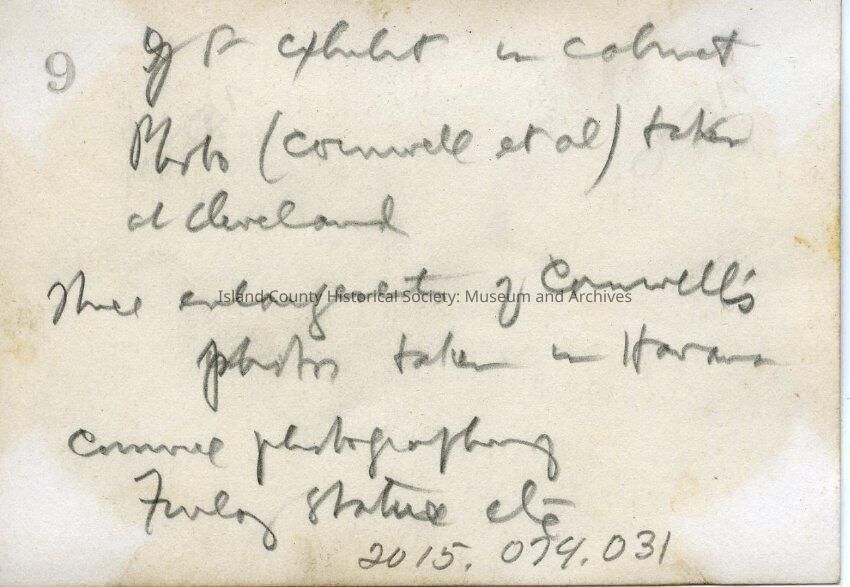 9
exhibit in cabinet
Photo (Cornwell et al) taken
at Cleveland
Three enlargements of Cornwell's
Island County Historical Society: Museum and Archives
photos taken in Havana
Cornwell photographing
Finlay statue etc
2015.074.031